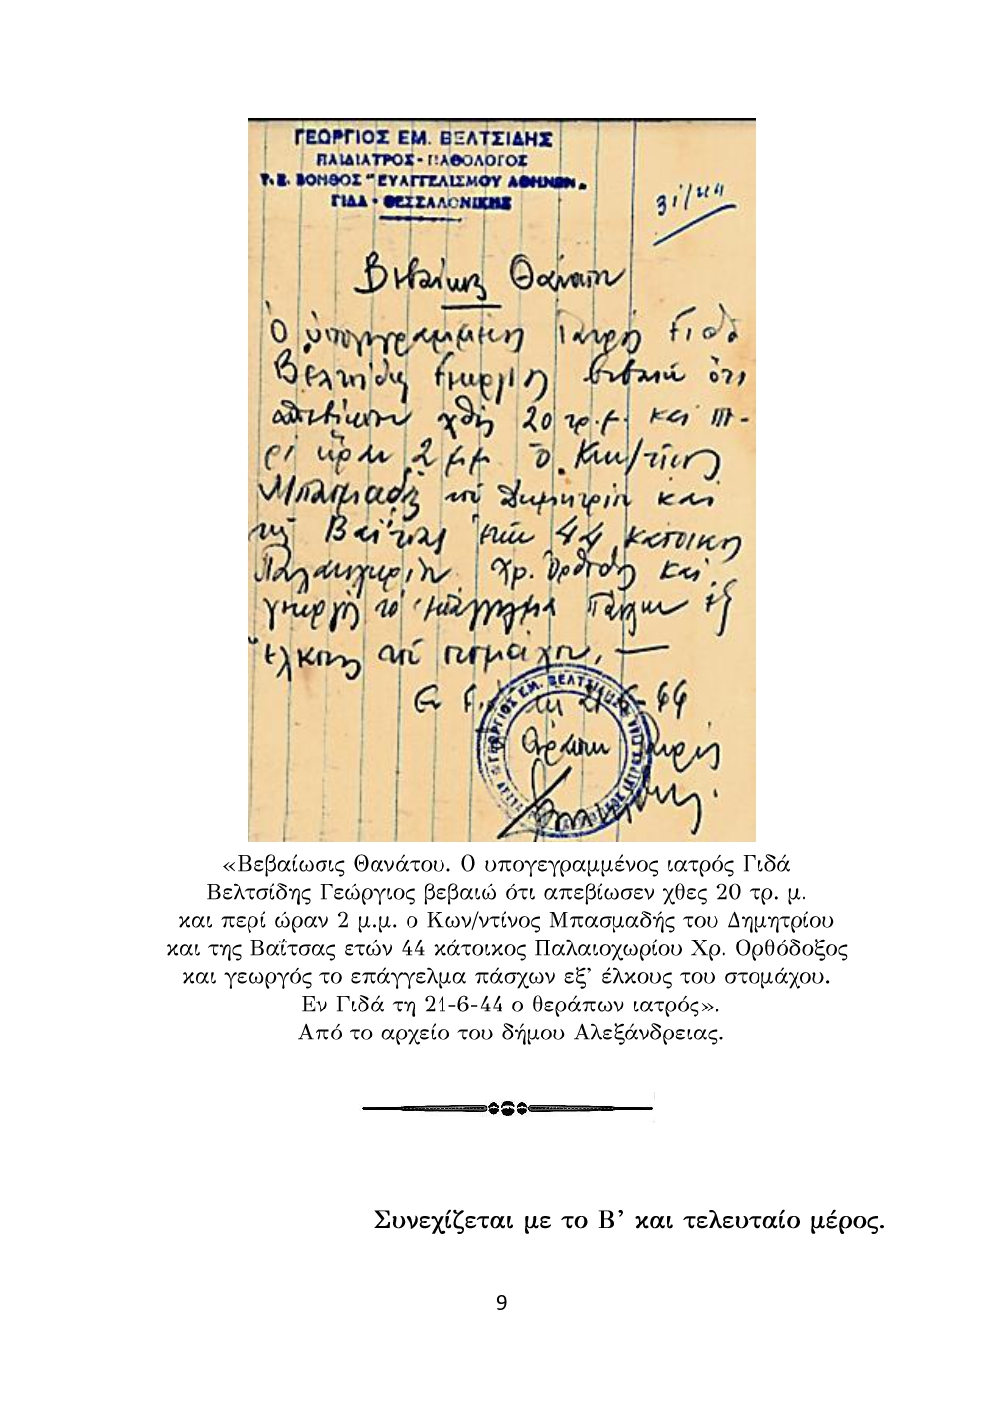 ΓΕΩΡΓΙΟΣ ΕΜ. ΒΕΛΤΣΙΔΗΣ
ΠΑΙΔΙΑΤΡΟΣ - ΠΑΘΟΛΟΓΟΣ
Τ. Ε. ΒΟΗΘΟΣ "ΕΥΑΓΓΕΛΙΣΜΟΥ ΑΘΗΝΩΝ"
ΓΙΔΑ - ΘΕΣΣΑΛΟΝΙΚΗΣ
31/44
Βεβαίωσις Θανάτου
Ο υπογεγραμμένος Ιατρός Γιδά
Βελτσίδης Γεώργιος βεβαιώ ότι
απεβίωσεν χθες 20 τρ. μ. και πε-
ρί ώραν 2 μμ. ο Κων/τίνος
Μπασμαδής του Δημητρίου και
της Βαΐτσας ετών 44 κάτοικος
Παλαιοχωρίου Χρ. Ορθόδοξος και
γεωργός το επάγγελμα πάσχων εξ
έλκους του στομάχου. —
Εν Γιδά τη 21-6-44
Ο θεράπων ιατρός
ΓΕΩΡΓΙΟΣ ΕΜ. ΒΕΛΤΣΙΔΗΣ
«Βεβαίωσις Θανάτου. Ο υπογεγραμμένος ιατρός Γιδά
Βελτσίδης Γεώργιος βεβαιώ ότι απεβίωσεν χθες 20 τρ. μ.
και περί ώραν 2 μ.μ. ο Κων/ντίνος Μπασμαδής του Δημητρίου
και της Βαΐτσας ετών 44 κάτοικος Παλαιοχωρίου Χρ. Ορθόδοξος
και γεωργός το επάγγελμα πάσχων εξ' έλκους του στομάχου.
Εν Γιδά τη 21-6-44 ο θεράπων ιατρός».
Από το αρχείο του δήμου Αλεξάνδρειας.
Συνεχίζεται με το Β' και τελευταίο μέρος.
9